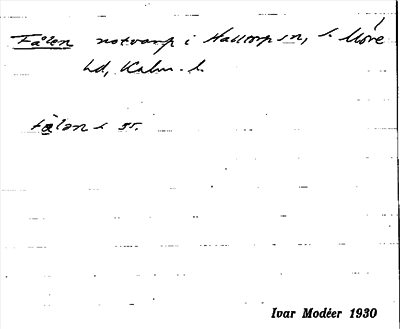 Fålen notvarp i Hallorp sn, S. Möre
hd, Kalm. l.
fålən s ss.
Ivar Modéer 1930